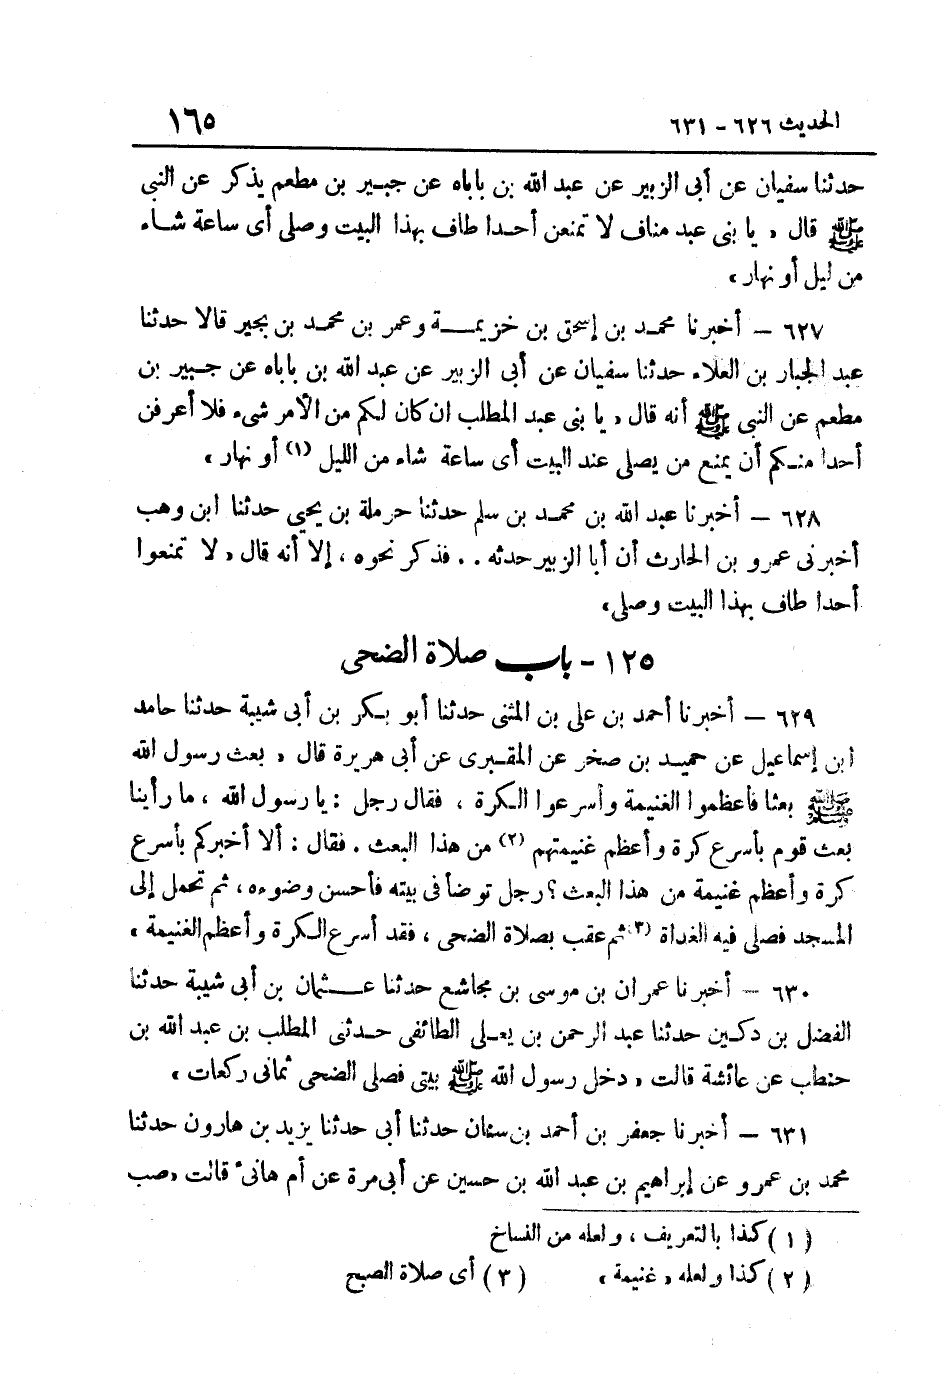 الحديث ٦٢٦ - ٦٣١ ١٦٥
حدثنا سفيان عن أبى الزبير عن عبد الله بن باباه عن جبير بن مطعم يذكر عن النبى
ﷺ قال « يا بنى عبد مناف لا تمنعن أحدا طاف بهذا البيت وصلى أى ساعة شاء
من ليل أو نهار »
٦٢٧ – أخبرنا محمد بن إسحق بن خزيمة وعمر بن محمد بن بجير قالا حدثنا
عبد الجبار بن العلاء حدثنا سفيان عن أبى الزبير عن عبد الله بن باباه عن جبير بن
مطعم عن النبى ﷺ أنه قال « يا بنى عبد المطلب ان كان لكم من الأمر شىء فلا أعرفن
أحدا منكم أن يمنع من يصلى عند البيت أى ساعة شاء من الليل (١) أو نهار »
٦٢٨ – أخبرنا عبد الله بن محمد بن سلم حدثنا حرملة بن يحيى حدثنا ابن وهب
أخبرنى عمرو بن الحارث أن أبا الزبير حدثه . . فذكر نحوه ، إلا أنه قال « لا تمنعوا
أحدا طاف بهذا البيت وصلى »
١٢٥ - باب صلاة الضحى
٦٢٩ – أخبرنا أحمد بن على بن المثنى حدثنا أبو بكر بن أبى شيبة حدثنا حامد
ابن إسماعيل عن حميد بن صخر عن المقبرى عن أبى هريرة قال « بعث رسول الله
ﷺ بعثا فأعظموا الغنيمة وأسرعوا الكرة ، فقال رجل : يا رسول الله ، ما رأينا
بعث قوم بأسرع كرة وأعظم غنيمتهم (٢) من هذا البعث . فقال : ألا أخبركم بأسرع
كرة وأعظم غنيمة من هذا البعث ؟ رجل توضأ فى بيته فأحسن وضوءه ، ثم تحمل إلى
المسجد فصلى فيه الغداة (٣) ثم عقب بصلاة الضحى ، فقد أسرع الكرة وأعظم الغنيمة »
٦٣٠ – أخبرنا عمران بن موسى بن مجاشع حدثنا عثمان بن أبى شيبة حدثنا
الفضل بن دكين حدثنا عبد الرحمن بن يعلى الطائفى حدثنى المطلب بن عبد الله بن
حنطب عن عائشة قالت « دخل رسول الله ﷺ بيتى فصلى الضحى ثمانى ركعات »
٦٣١ – أخبرنا جعفر بن أحمد بن سنان حدثنا أبى حدثنا يزيد بن هارون حدثنا
محمد بن عمرو عن إبراهيم بن عبد الله بن حسين عن أبى مرة عن أم هانىء قالت « صب
(١) كذا بالتعريف ، ولعله من النساخ
(٢) كذا ولعله « غنيمة » (٣) أى صلاة الصبح